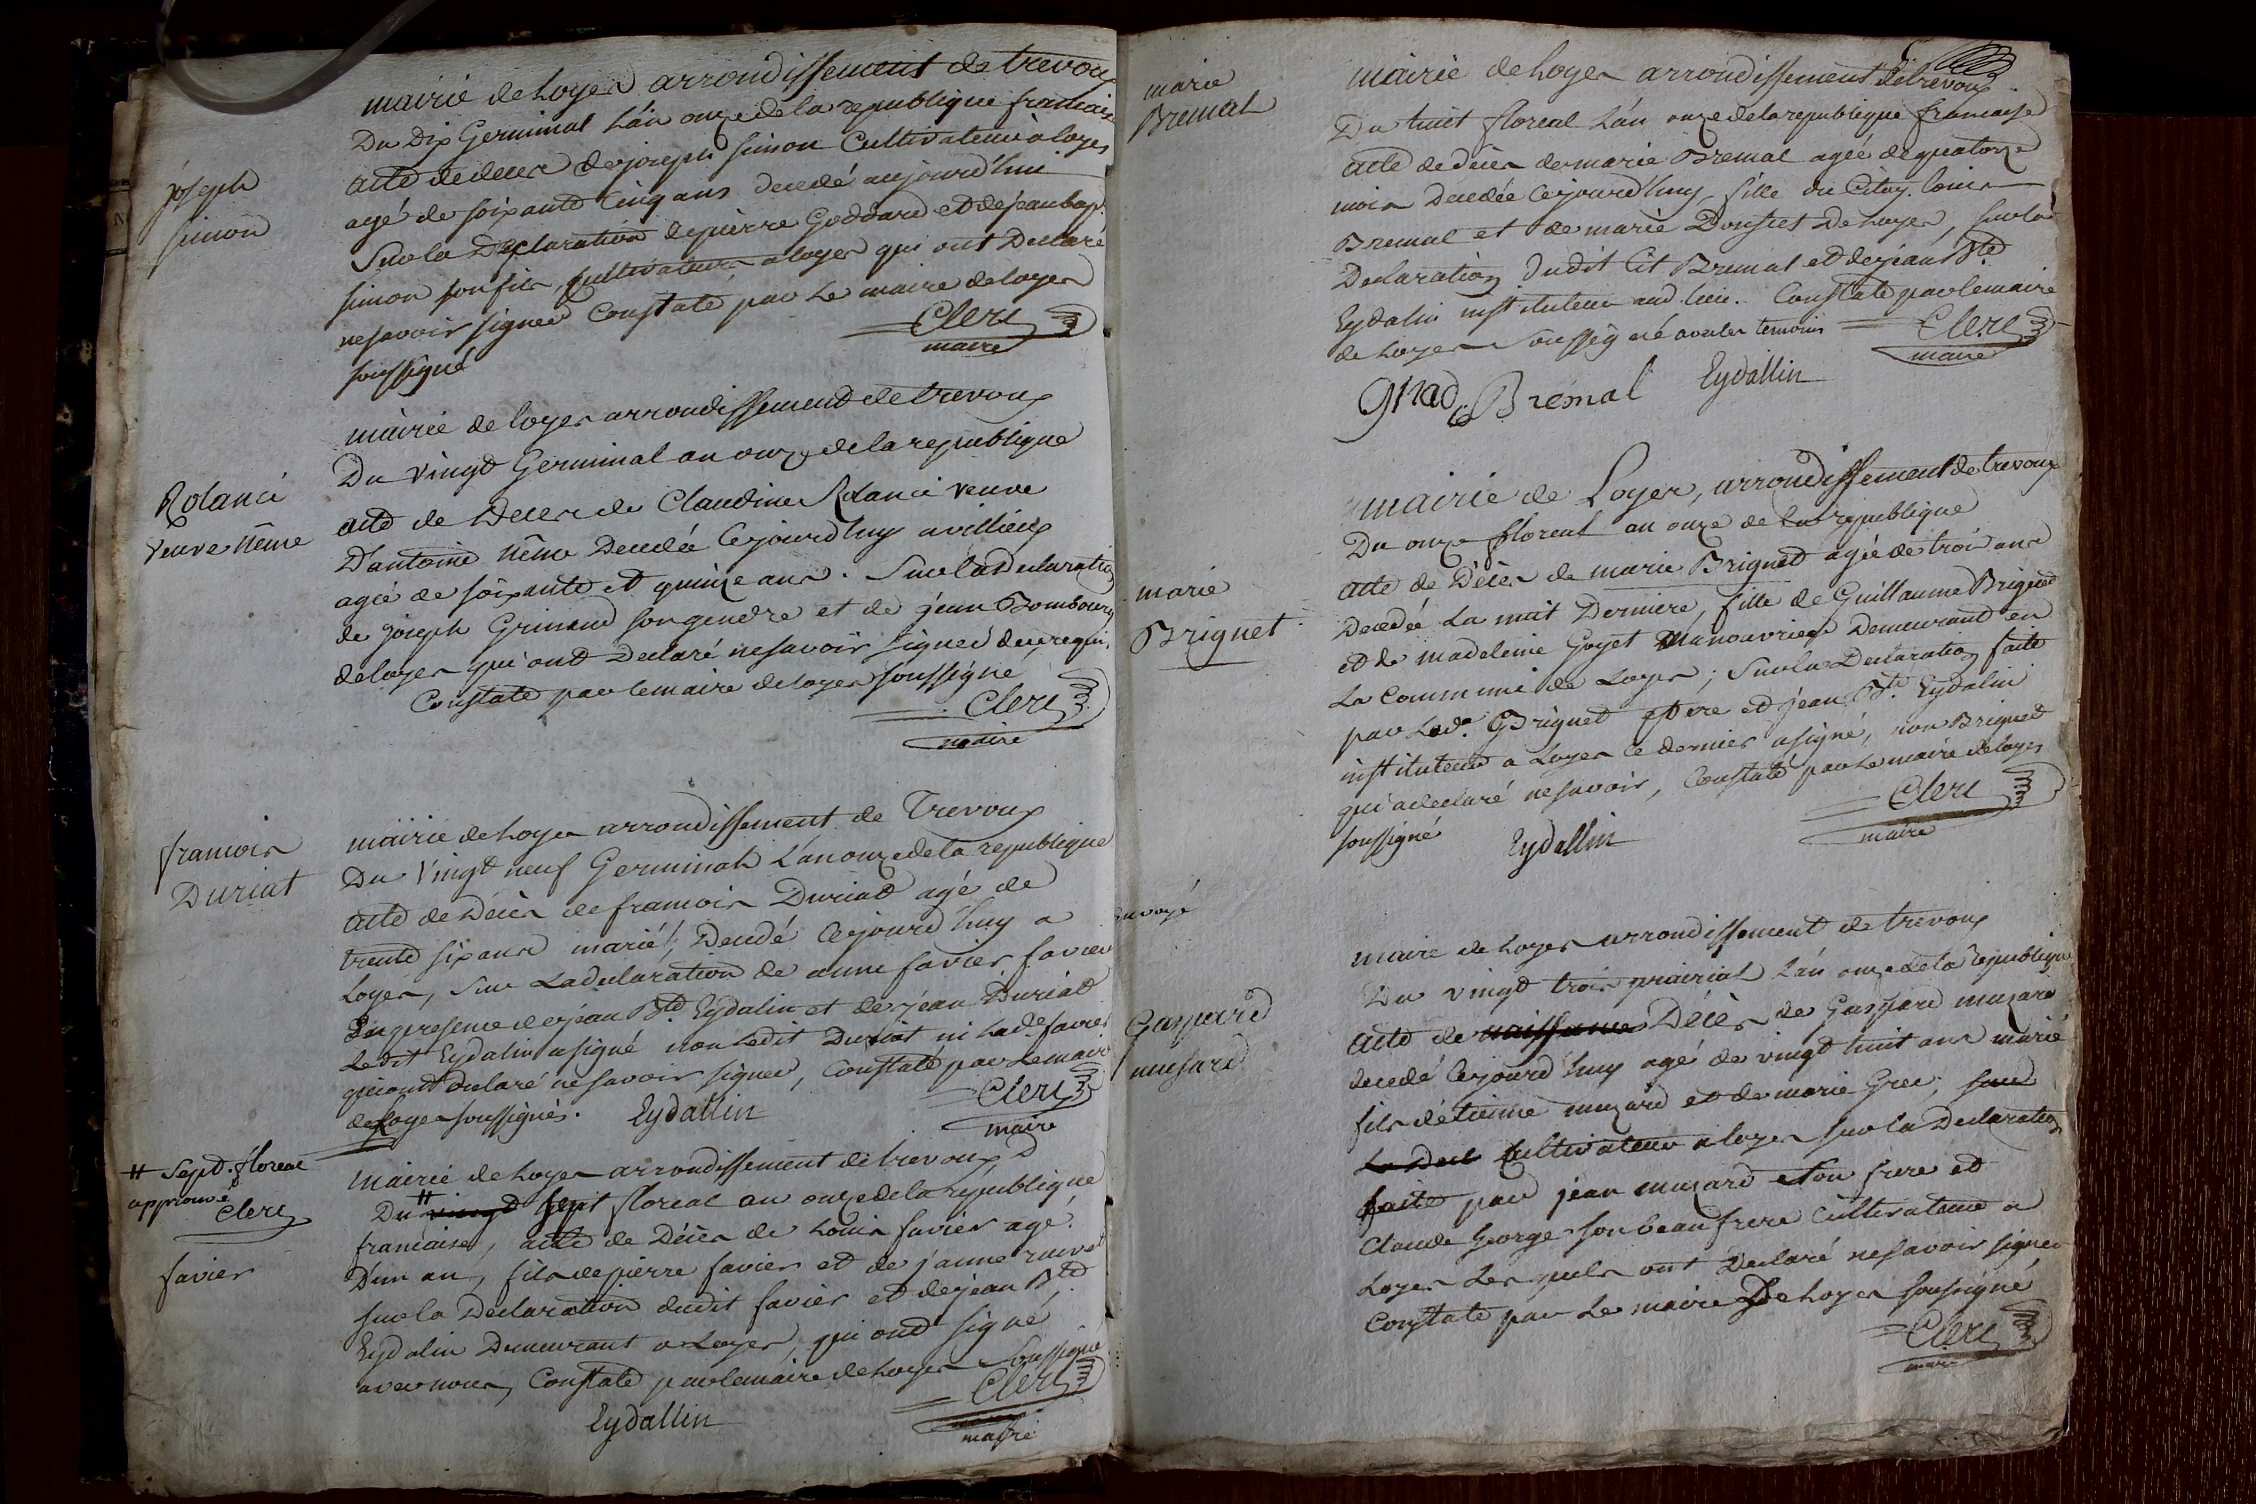 joseph
simon
mairie de Loyes arrondissement de trevoux
Du Dix Germinal L'an onze de la republique francaise
acte de deces de joseph simon Cultivateur a loyes
agé de soixante Cinq ans decedé aujourd'hui
Sur la Declaration de pierre Goddard et de jean bap.
simon son fils, cultivateurs a loyes qui ont Declaré
ne savoir signer Constaté par Le maire de loyes
soussigné
Clerc
maire
Rolanci
veuve Nême
mairie de loyes arrondissement de trevoux
Du vingt Germinal an onze de la republique
acte de Deces de Claudine Rolanci veuve
D'antoine Nême Decedée Cejourd'huy a villieux
agée de soixante et quinze ans. Sur la Declaration
de joseph Grimaud son gendre et de jean Bombourg
de loyes qui ont Declaré ne savoir signer de ce requis.
Constaté par le maire de loyes soussigné
Clerc
maire
francois
Duriat
mairie de Loyes arrondissement de Trevoux
Du Vingt neuf Germinal L'an onze de la republique
acte de Décès de francois Duriat agé de
trente six ans marié, Decedé Cejourd'huy a
Loyes, sur La declaration de anne favier favier
En presence de jean Bte Eydalin et de jean Duriat
Ledit Eydalin a signé non Ledit Duriat ni Lade favier
qui ont declaré ne savoir signer, Constaté par Le maire
de Loyes soussignés.
Eydallin
Clerc
maire
# Sept. floreal
approuvé
Clerc
favier
mairie de Loyes arrondissement de trevoux
Du # vingt sept floreal an onze de la republique
francaise, acte de Décès de Louis favier agé
D'un an, fils de pierre favier et de janne ravet
sur la Declaration dudit favier et de jean Bte
Eydalin Demeurant a Loyes, qui ont signé
avec nous, Constaté par le maire de Loyes Soussigné
Clerc
maire
Eydallin
marie
Bremal
mairie de Loyes arrondissement de trevoux
Du huit floreal L'an onze de la republique francaise
acte de décès de marie Bremal agée de quatorze
mois Decedée Cejourd'huy, fille du Citoy. louis
Bremal et de marie Doustet De Loyes, sur la
Declaration dudit Cit Bremal et de jean Bte
Eydalin instituteur aud. lieu. Constaté par le maire
de Loyes Soussigné avec les temoins
Clerc
maire
Bremal
Eydallin
marie
Brignet
mairie de Loyes, arrondissement de trevoux
Du onze floreal an onze de la republique
acte de Décès de marie Brignet agée de trois ans
Decedée La nuit Derniere, fille de Guillaume Brignet
et de madeleine Goyet Manouvriers Demeurant en
La Commune de Loyes; Sur la Declaration faite
par Led. Brignet pere et jean Bte. Eydalin
instituteur a Loyes Ce dernier a signé, non Brignet
qui a declaré ne savoir, Constaté par Le maire de loyes
soussigné
Eydallin
Clerc
maire
envoyé
Gaspard
musard
maire de Loyes arrondissement de trevoux
Du vingt trois prairial L'an onze de la republique
acte de naissance Décès de Gaspard muzard
decedé Cejourd'huy agé de vingt huit ans marié
fils d'étienne muzard et de marie Grec, sur
La Decl Cultivateur a loyes sur la Declaration
faite par jean muzard son frere et
Claude George son beau frere Cultivateurs a
Loyes Les quels ont Declaré ne savoir signer
Constaté par Le maire De Loyes soussigné
Clerc
maire